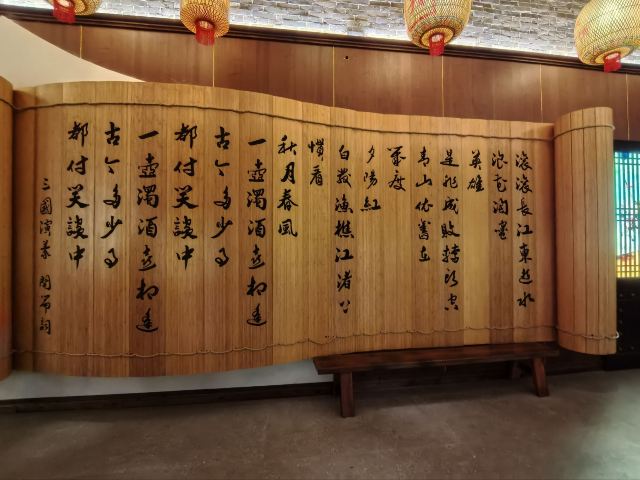 滚滚長江東逝水
浪花淘盡
英雄
是非成敗轉頭空
青山依舊在
幾度
夕陽紅
白髮漁樵江渚上
慣看
秋月春風
一壺濁酒喜相逢
古今多少事
都付笑談中
一壺濁酒喜相逢
古今多少事
都付笑談中
三國演義 開篇詞